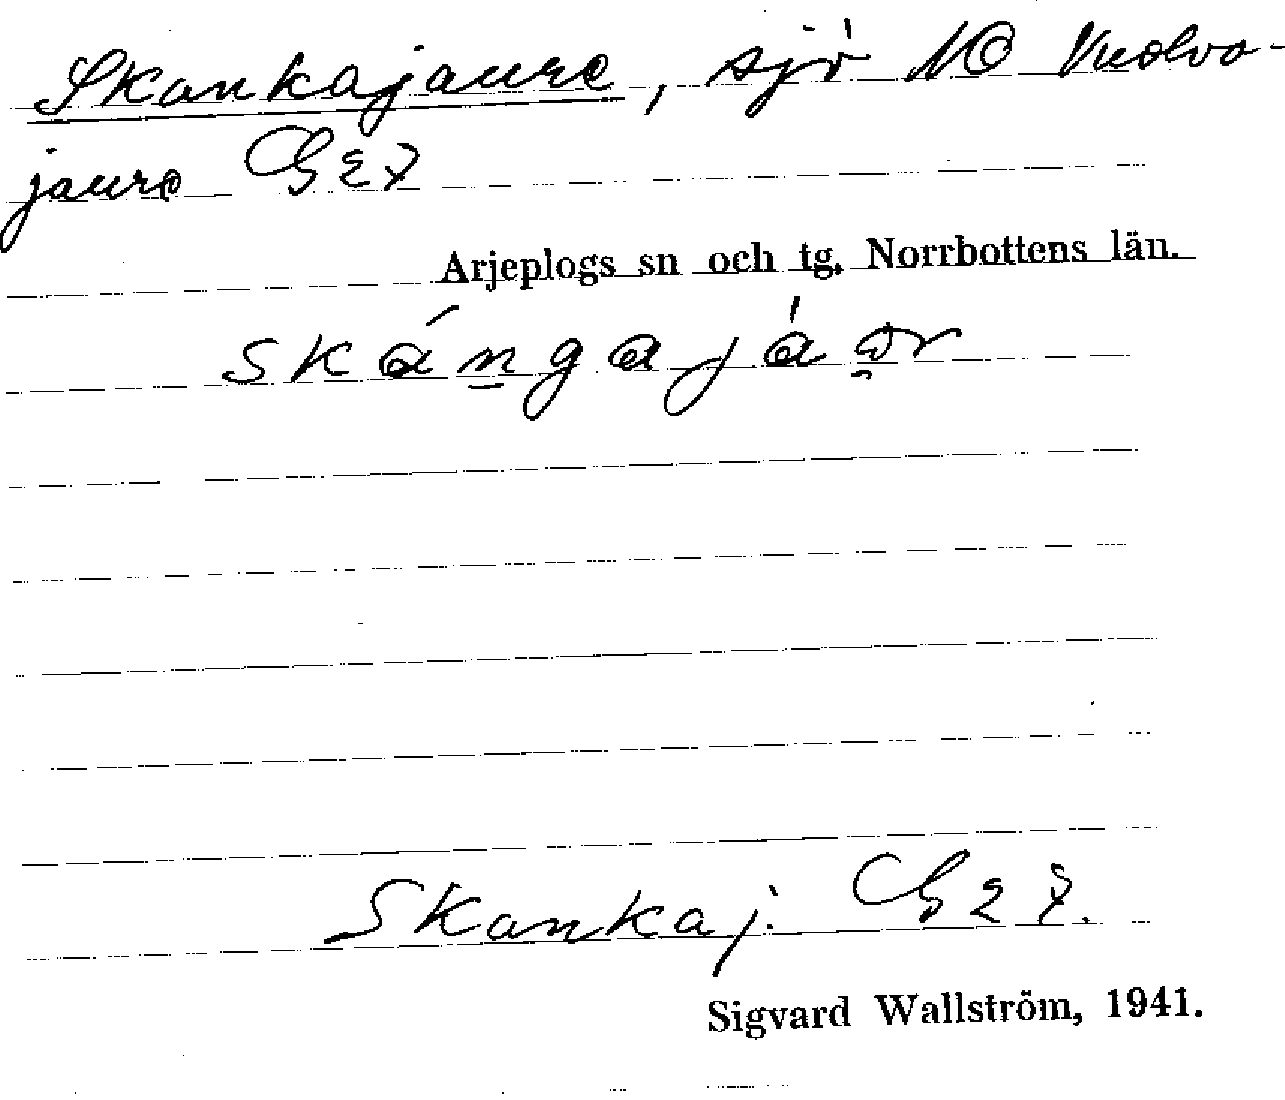 Skankajaure, sjö NO Vuolvo-
jaure G27
Arjeplogs sn och tg. Norrbottens län.
skángajáør
Skankaj. G27.
Sigvard Wallström, 1941.